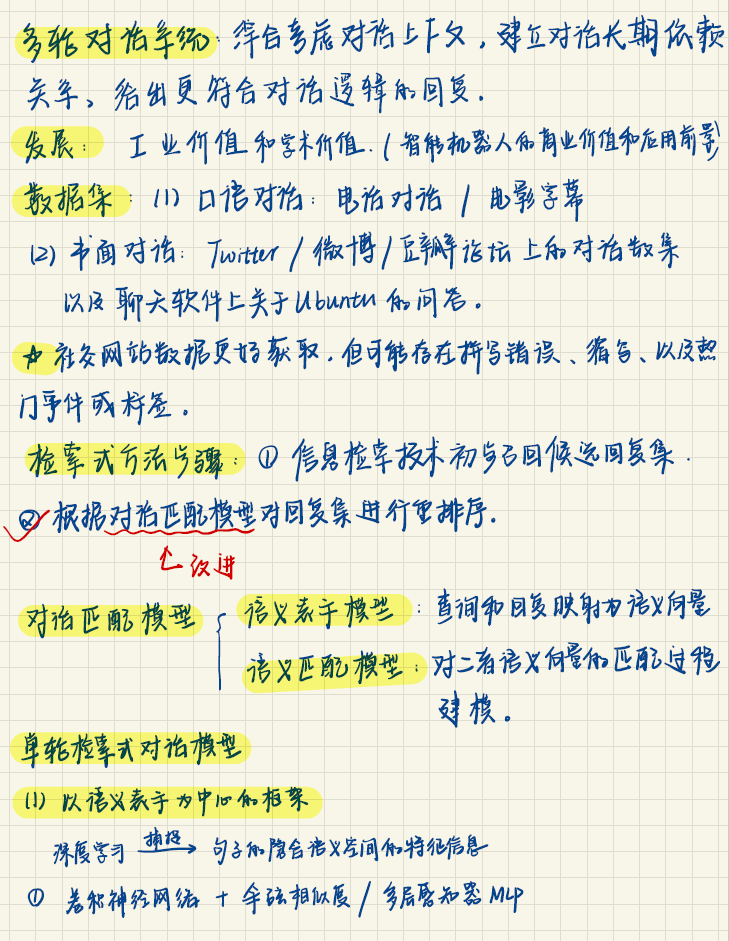 多轮对话系统：综合考虑对话上下文，建立对话长期依赖
关系，给出更符合对话逻辑的回复.
发展： 工业价值和学术价值.（智能机器人的商业价值和应用前景）
数据集：(1) 口语对话：电话对话 / 电影字幕
(2) 书面对话：Twitter / 微博 / 豆瓣论坛上的对话数集
以及聊天软件上关于Ubuntu的问答。
☆ 社交网站数据更好获取，但可能存在拼写错误、缩写、以及热
门事件或标签。
检索式方法步骤：① 信息检索技术初步召回候选回复集.
② 根据对话匹配模型对回复集进行重排序.
↑改进
对话匹配模型 { 语义表示模型：查询和回复映射为语义向量
语义匹配模型：对二者语义向量的匹配过程
建模。
单轮检索式对话模型
(1) 以语义表示为中心的框架
深度学习 捕捉→ 句子的隐含语义空间的特征信息
① 卷积神经网络 + 余弦相似度 / 多层感知器 MLP